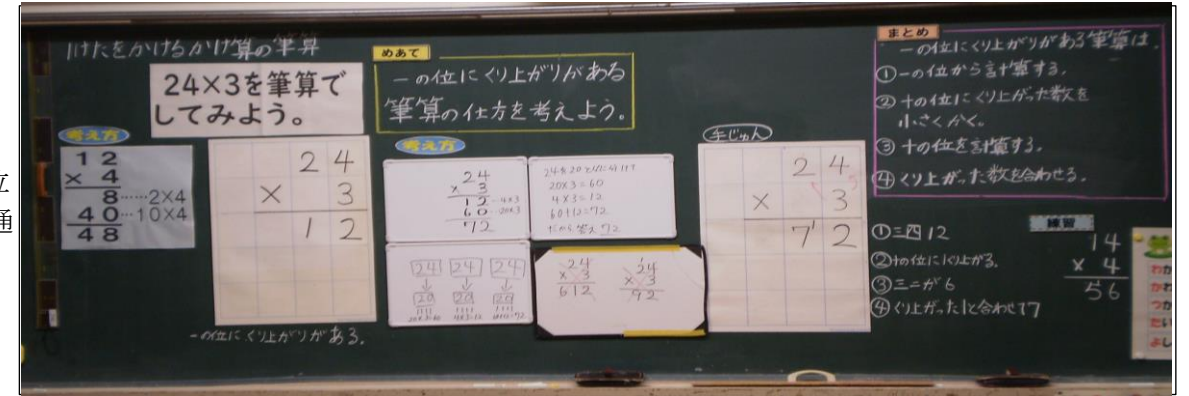 立
通
1けたをかけるかけ算の筆算
24×3を筆算で
してみよう。
考え方
12
× 4
8……2×4
40…10×4
48
24
× 3
12
一の位にくり上がりがある。
めあて
一の位にくり上がりがある
筆算の仕方を考えよう。
考え方
24
× 3
12…4×3
60…20×3
72
24を20と4に分けて
20×3=60
4×3=12
60+12=72
だから答え72
24 24 24
↓ ↓ ↓
20 20 20
20×3=60 4×3=12 60+12=72
24
× 3
612
24
× 3
92
手じゅん
24
× 3
712
まとめ
一の位にくり上がりがある筆算は、
①一の位から計算する。
②十の位にくり上がった数を
小さくかく。
③十の位を計算する。
④くり上がった数を合わせる。
①三四12
②十の位に1くり上がる。
③三二が6
④くり上がった1と合わせて7
練習
14
× 4
56
わか
かわ
つか
たい
よし